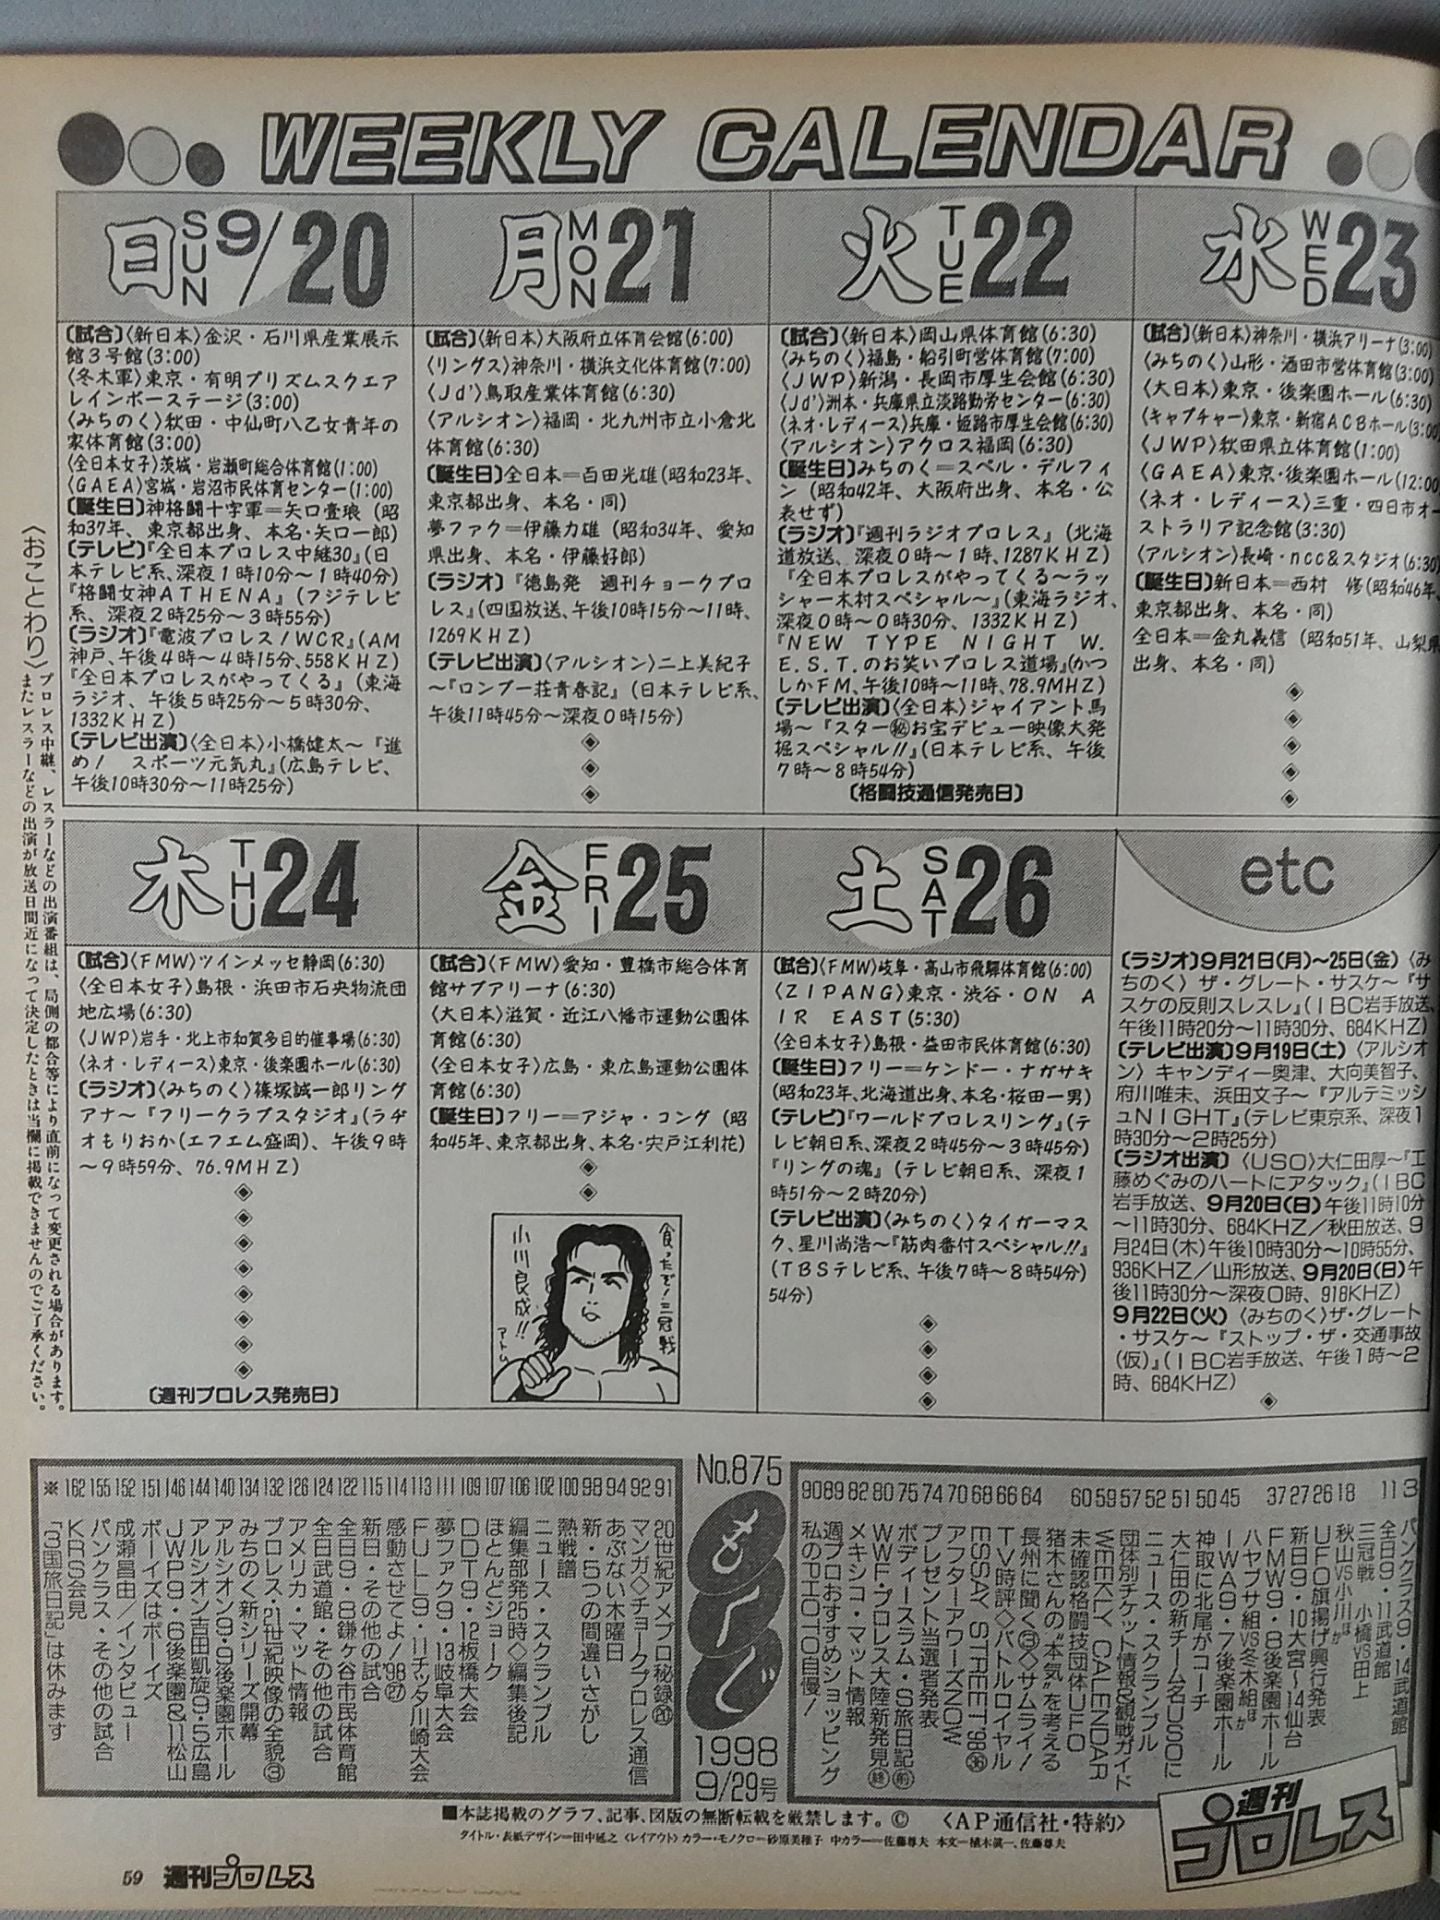 WEEKLY CALENDAR
日 SUN 9/20
〔試合〕〈新日本〉金沢・石川県産業展示
館3号館(3:00)
〈冬木軍〉東京・有明プリズムスクエア
レインボーステージ(3:00)
〈みちのく〉秋田・中仙町八乙女青年の
家体育館(3:00)
〈全日本女子〉茨城・岩瀬町総合体育館(1:00)
〈GAEA〉宮城・岩沼市民体育センター(1:00)
〔誕生日〕神格闘十字軍=矢口壹琅（昭
和37年、東京都出身、本名・矢口一郎）
〔テレビ〕『全日本プロレス中継30』(日
本テレビ系、深夜1時10分〜1時40分)
『格闘女神ATHENA』(フジテレビ
系、深夜2時25分〜3時55分)
〔ラジオ〕『電波プロレス!WCR』(AM
神戸、午後4時〜4時15分、558KHZ)
『全日本プロレスがやってくる』(東海
ラジオ、午後5時25分〜5時30分、
1332KHZ)
〔テレビ出演〕〈全日本〉小橋健太〜『進
め! スポーツ元気丸』(広島テレビ、
午後10時30分〜11時25分)
月 MON 21
〔試合〕〈新日本〉大阪府立体育会館(6:00)
〈リングス〉神奈川・横浜文化体育館(7:00)
〈Jd'〉鳥取産業体育館(6:30)
〈アルシオン〉福岡・北九州市立小倉北
体育館(6:30)
〔誕生日〕全日本=百田光雄(昭和23年、
東京都出身、本名・同)
夢ファク=伊藤力雄（昭和34年、愛知
県出身、本名・伊藤好郎)
〔ラジオ〕『徳島発 週刊チョークプロ
レス』(四国放送、午後10時15分〜11時、
1269KHZ)
〔テレビ出演〕〈アルシオン〉二上美紀子
〜『ロンブー荘青春記』(日本テレビ系、
午後11時45分〜深夜0時15分)
◈
◈
◈
火 TUE 22
〔試合〕〈新日本〉岡山県体育館(6:30)
〈みちのく〉福島・船引町営体育館(7:00)
〈JWP〉新潟・長岡市厚生会館(6:30)
〈Jd'〉洲本・兵庫県立淡路勤労センター(6:30)
〈ネオ・レディース〉兵庫・姫路市厚生会館(6:30)
〈アルシオン〉アクロス福岡(6:30)
〔誕生日〕みちのく=スペル・デルフィ
ン（昭和42年、大阪府出身、本名・公
表せず)
〔ラジオ〕『週刊ラジオプロレス』(北海
道放送、深夜0時〜1時、1287KHZ)
『全日本プロレスがやってくる〜ラッ
シャー木村スペシャル〜』(東海ラジオ、
深夜0時〜0時30分、1332KHZ)
『NEW TYPE NIGHT W.
E.S.T.のお笑いプロレス道場』(かつ
しかFM、午後10時〜11時、78.9MHZ)
〔テレビ出演〕〈全日本〉ジャイアント馬
場〜『スター㊙お宝デビュー映像大発
掘スペシャル!!』(日本テレビ系、午後
7時〜8時54分)
〔格闘技通信発売日〕
水 WED 23
〔試合〕〈新日本〉神奈川・横浜アリーナ(3:00)
〈みちのく〉山形・酒田市営体育館(3:00)
〈大日本〉東京・後楽園ホール(6:30)
〈キャプチャー〉東京・新宿ACBホール(3:00)
〈JWP〉秋田県立体育館(1:00)
〈GAEA〉東京・後楽園ホール(12:00)
〈ネオ・レディース〉三重・四日市オー
ストラリア記念館(3:30)
〈アルシオン〉長崎・ncc&スタジオ(6:30)
〔誕生日〕新日本=西村 修(昭和46年、
東京都出身、本名・同)
全日本=金丸義信（昭和51年、山梨県
出身、本名・同)
◈
◈
◈
◈
◈
木 THU 24
〔試合〕〈FMW〉ツインメッセ静岡(6:30)
〈全日本女子〉島根・浜田市石央物流団
地広場(6:30)
〈JWP〉岩手・北上市和賀多目的催事場(6:30)
〈ネオ・レディース〉東京・後楽園ホール(6:30)
〔ラジオ〕〈みちのく〉篠塚誠一郎リング
アナ〜『フリークラブスタジオ』(ラヂ
オもりおか(エフエム盛岡)、午後9時
〜9時59分、76.9MHZ)
◈
◈
◈
◈
◈
◈
◈
◈
〔週刊プロレス発売日〕
金 FRI 25
〔試合〕〈FMW〉愛知・豊橋市総合体育
館サブアリーナ(6:30)
〈大日本〉滋賀・近江八幡市運動公園体
育館(6:30)
〈全日本女子〉広島・東広島運動公園体
育館(6:30)
〔誕生日〕フリー=アジャ・コング（昭
和45年、東京都出身、本名・宍戸江利花)
◈
◈
食ったぞ!三冠戦
小川良成!!
アトム
土 SAT 26
〔試合〕〈FMW〉岐阜・高山市飛騨体育館(6:00)
〈ZIPANG〉東京・渋谷・ON A
IR EAST(5:30)
〈全日本女子〉島根・益田市民体育館(6:30)
〔誕生日〕フリー=ケンドー・ナガサキ
(昭和23年、北海道出身、本名・桜田一男)
〔テレビ〕『ワールドプロレスリング』(テ
レビ朝日系、深夜2時45分〜3時45分)
『リングの魂』(テレビ朝日系、深夜1
時51分〜2時20分)
〔テレビ出演〕〈みちのく〉タイガーマス
ク、星川尚浩〜『筋肉番付スペシャル!!』
(TBSテレビ系、午後7時〜8時54分)
54分)
◈
◈
◈
◈
etc
〔ラジオ〕9月21日(月)〜25日(金)〈み
ちのく〉ザ・グレート・サスケ〜『サ
スケの反則スレスレ』(IBC岩手放送、
午後11時20分〜11時30分、684KHZ)
〔テレビ出演〕9月19日(土)〈アルシオ
ン〉キャンディー奥津、大向美智子、
府川唯未、浜田文子〜『アルテミッシ
ュNIGHT』(テレビ東京系、深夜1
時30分〜2時25分)
〔ラジオ出演〕〈USO〉大仁田厚〜『工
藤めぐみのハートにアタック』(IBC
岩手放送、9月20日(日)午後11時10分
〜11時30分、684KHZ/秋田放送、9
月24日(木)午後10時30分〜10時55分、
936KHZ/山形放送、9月20日(日)午
後11時30分〜深夜0時、918KHZ)
9月22日(火)〈みちのく〉ザ・グレート
・サスケ〜『ストップ・ザ・交通事故
(仮)』(IBC岩手放送、午後1時〜2
時、684KHZ)
◈
〈おことわり〉プロレス中継、レスラーなどの出演番組は、局側の都合等により直前になって変更される場合があります。
またレスラーなどの出演が放送日間近になって決定したときは当欄に掲載できませんのでご了承ください。
No.875
もくじ
1998
9/29号
3 パンクラス9・14武道館
11 全日9・11武道館
三冠戦 小橋VS田上
秋山VS小川ほか
18 UFO旗揚げ興行発表
26 新日9・10大宮〜14仙台
27 FMW9・8後楽園ホール
37 ハヤブサ組VS冬木組ほか
45 IWA9・7後楽園ホール
50 神取に北尾がコーチ
51 大仁田の新チーム名はUSOに
52 ニュース・スクランブル
57 団体別チケット情報&観戦ガイド
59 WEEKLY CALENDAR
60 未確認格闘技団体UFO
猪木さんの“本気”を考える
64 長州に聞く③◇サムライ!
66 TV時評◇バトルロイヤル
68 ESSAY STREET'98㊱
70 アフターアワーズNOW
74 プレゼント当選者発表
75 ボディースラム・S旅日記㊞
80 WWF・プロレス大陸新発見㊡
82 メキシコ・マット情報
89 週プロおすすめショッピング
90 私のPHOTO自慢!
91 20世紀アメプロ秘録⑳
92 マンガ◇チョークプロレス通信
94 あぶない木曜日
98 新・5つの間違いさがし
100 熱戦譜
102 ニュース・スクランブル
106 編集部発25時◇編集後記
107 ほとんどジョーク
109 DDT9・12板橋大会
111 夢ファク9・13岐阜大会
113 FULL9・11チッタ川崎大会
114 感動させてよ!'98㉗
115 新日・その他の試合
122 全日9・8鎌ヶ谷市民体育館
124 全日武道館・その他の試合
126 アメリカ・マット情報
132 プロレス・21世紀映像の全貌③
134 みちのく新シリーズ開幕
140 アルシオン9・9後楽園ホール
144 アルシオン吉田凱旋9・5広島
146 JWP9・6後楽園&11松山
151 ボーイズはボーイズ
152 成瀬昌由/インタビュー
155 パンクラス・その他の試合
162 KRS会見
※「3国旅日記」は休みます
■本誌掲載のグラフ、記事、図版の無断転載を厳禁します。© 〈AP通信社・特約〉
タイトル・表紙デザイン=田中延之〈レイアウト〉カラー・モノクロ=砂原美稚子 中カラー=佐藤尊夫 本文=植木眞一、佐藤尊夫
週刊プロレス
59 週刊プロレス